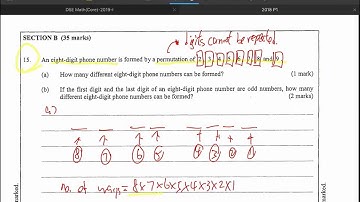 DSE Math(Core)-2019-I
2018 P1
SECTION B (35 marks)
* digits cannot be repeated.
15. An eight-digit phone number is formed by a permutation of 2, 3, 4, 5, 6, 7, 8 and 9.
(a) How many different eight-digit phone numbers can be formed? (1 mark)
(b) If the first digit and the last digit of an eight-digit phone number are odd numbers, how many
different eight-digit phone numbers can be formed? (2 marks)
a)
8 7 6 5 4 3 2 1
no. of ways = 8×7×6×5×4×3×2×1
marked.